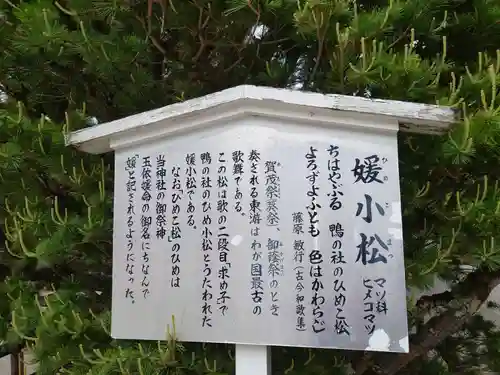 媛小松
ひめこまつ
マツ科
ヒメコマツ
ちはやぶる 鴨の社のひめ小松
よろずよふとも 色はかわらじ
藤原 敏行 (古今和歌集)
賀茂祭葵祭、御蔭祭のとき
奏される東游はわが国最古の
歌舞である。
この松は歌の二段目「求め子」で
鴨の社のひめ小松とうたわれた
媛小松である。
なお「ひめこ松」のひめは
当神社の御祭神
玉依媛命の御名にちなんで
媛”と記されるようになった。